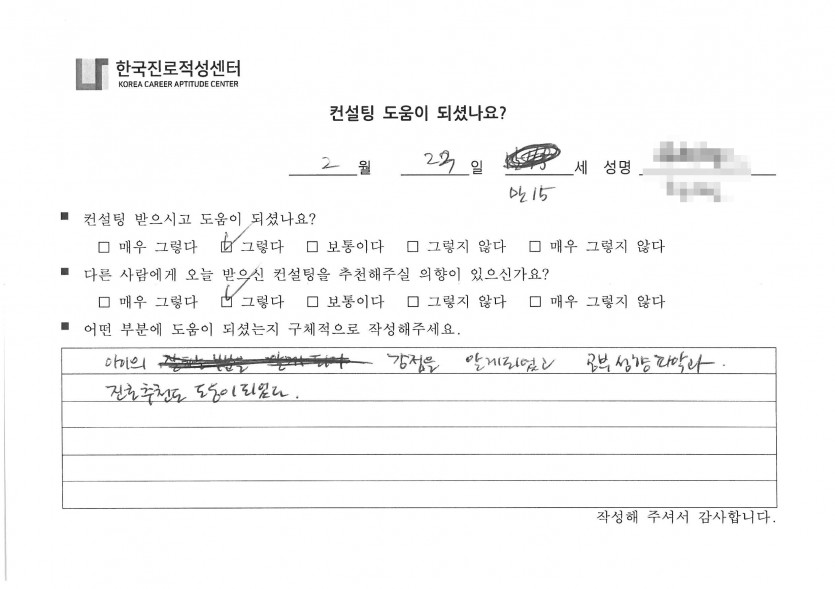 한국진로적성센터
KOREA CAREER APTITUDE CENTER
컨설팅 도움이 되셨나요?
2 월 일 세 성명
만 15
■ 컨설팅 받으시고 도움이 되셨나요?
□ 매우 그렇다 □ 그렇다 □ 보통이다 □ 그렇지 않다 □ 매우 그렇지 않다
■ 다른 사람에게 오늘 받으신 컨설팅을 추천해주실 의향이 있으신가요?
□ 매우 그렇다 □ 그렇다 □ 보통이다 □ 그렇지 않다 □ 매우 그렇지 않다
■ 어떤 부분에 도움이 되셨는지 구체적으로 작성해주세요.
아이의 강점을 알게되었고 공부성향파악과.
진로추천도 도움이되었다.
작성해 주셔서 감사합니다.